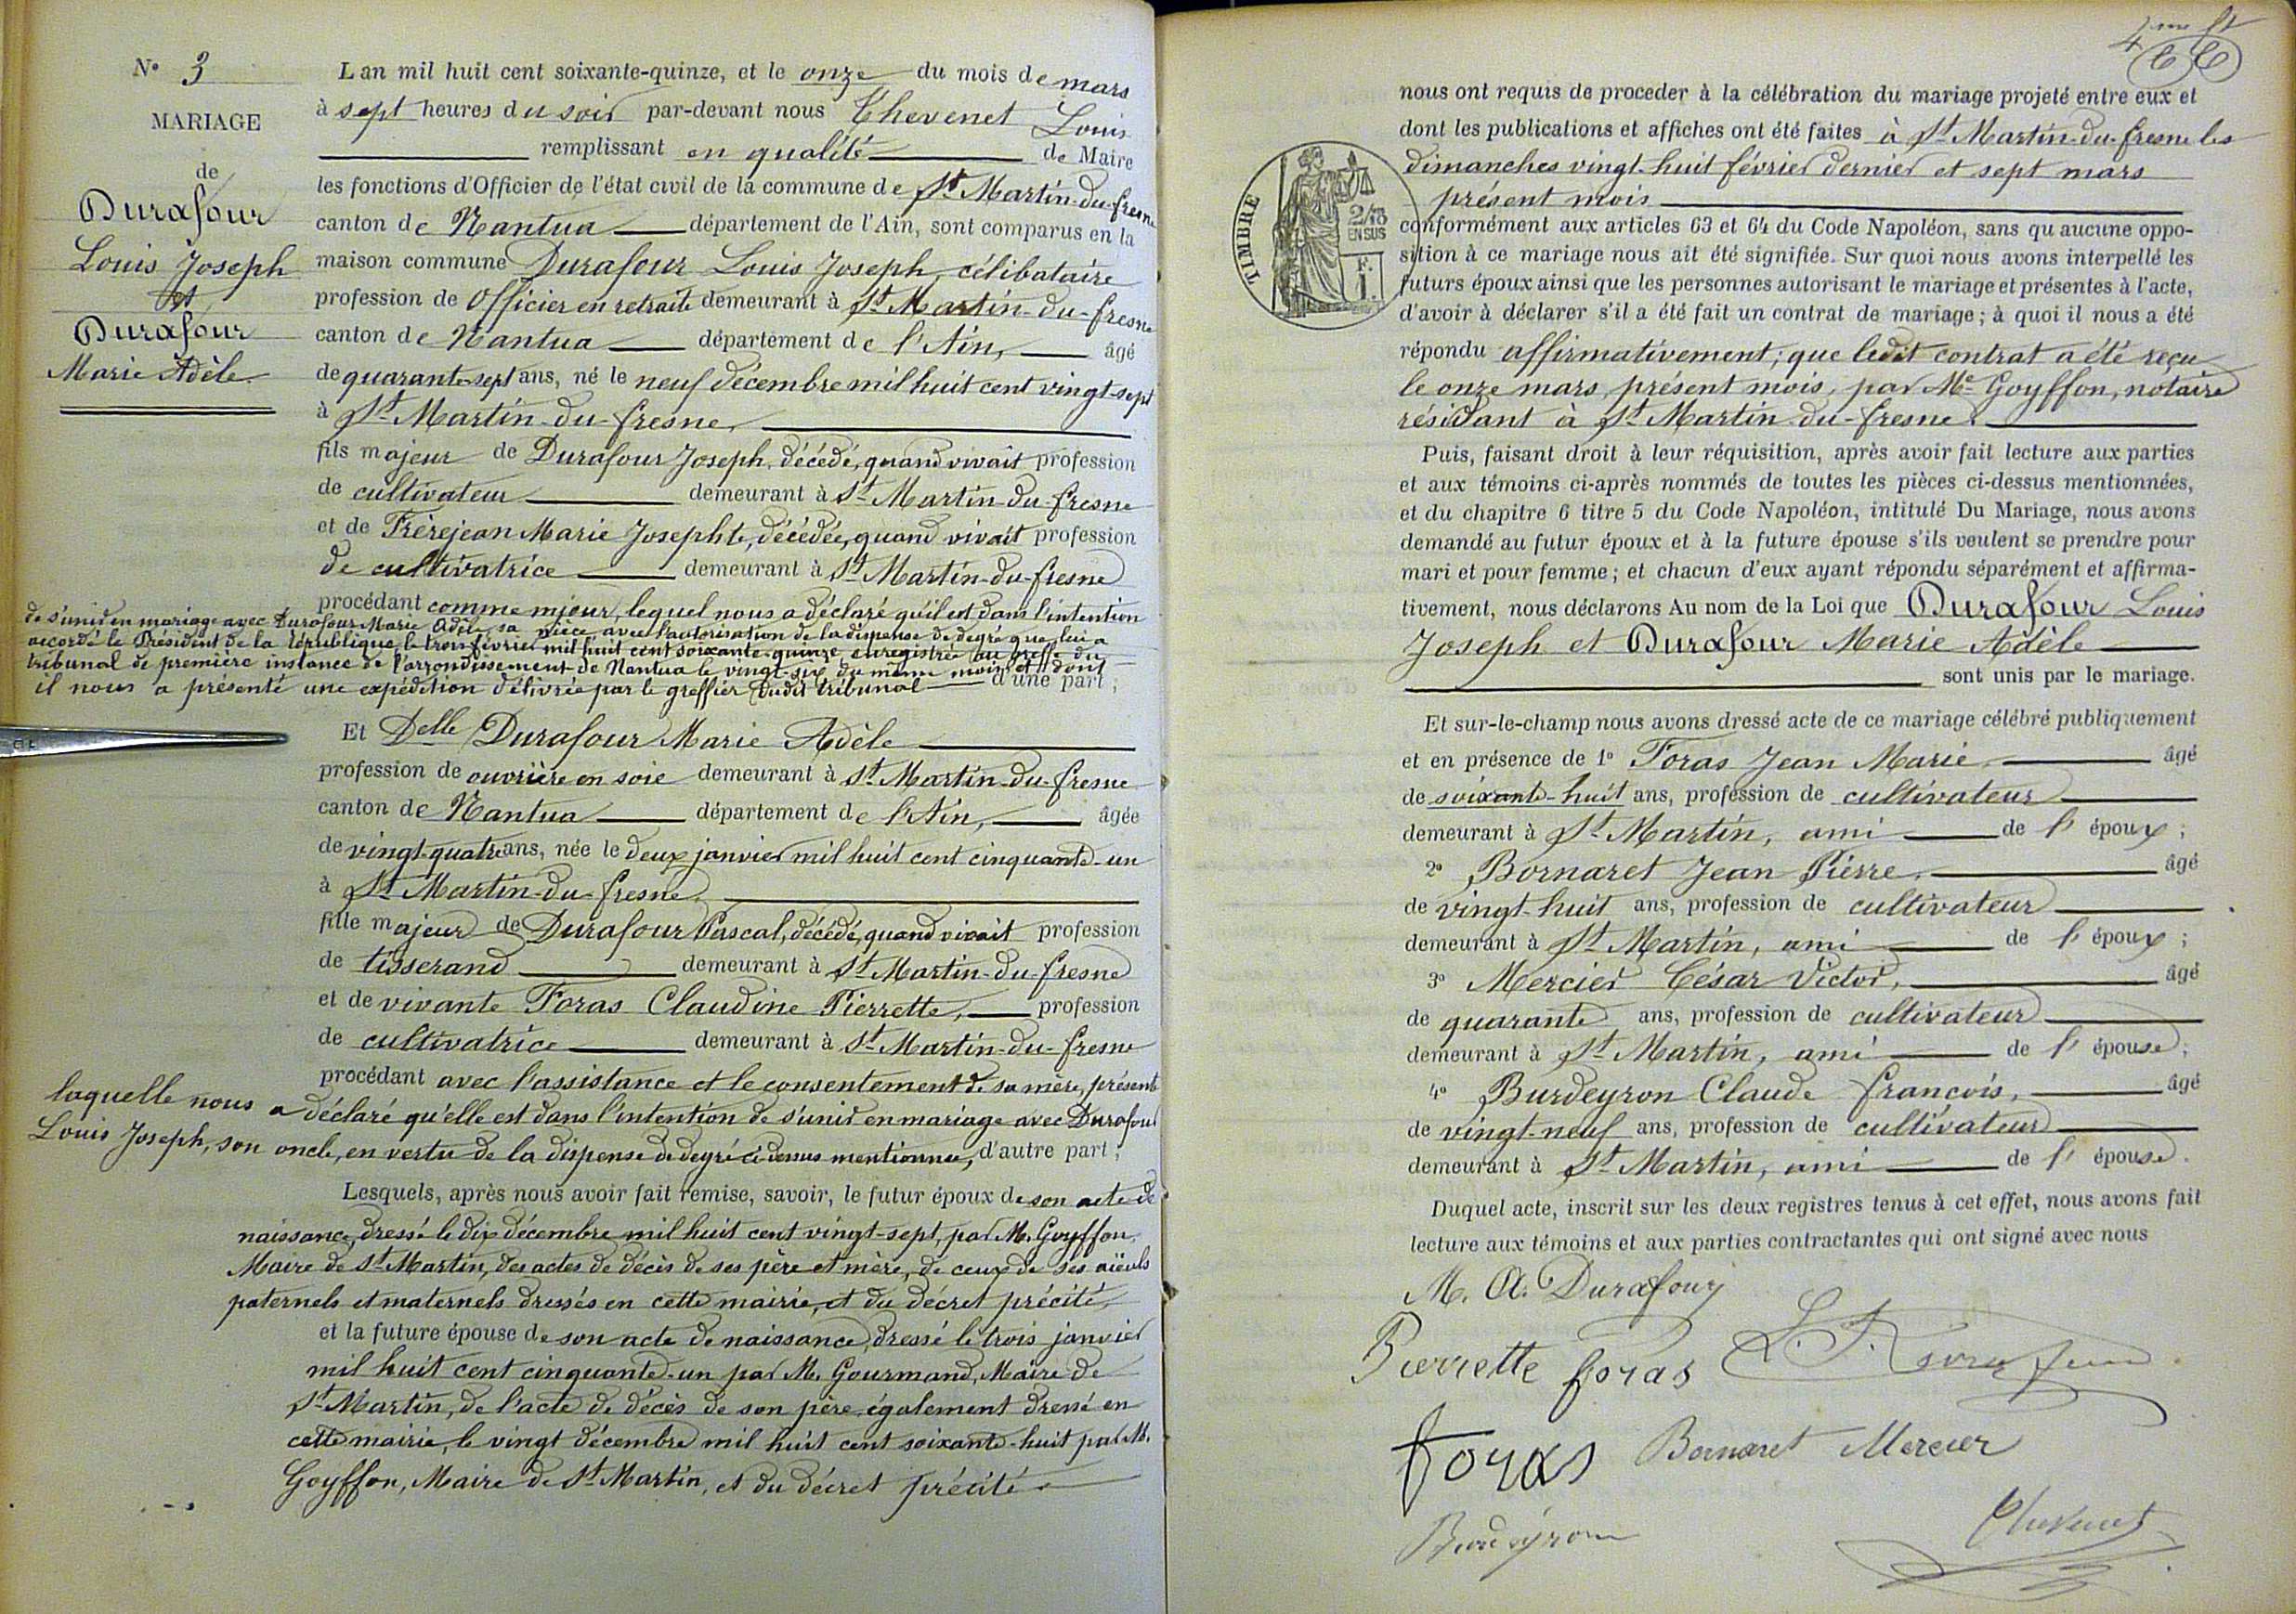 N° 3
MARIAGE
de
Durafour
Louis Joseph
et
Durafour
Marie Adèle
L an mil huit cent soixante-quinze, et le onze du mois de mars
à sept heures du soir par-devant nous Thevenet Louis
remplissant en qualité de Maire
les fonctions d'Officier de l'état civil de la commune de St Martin-du-fresne
canton de Nantua département de l'Ain, sont comparus en la
maison commune Durafour Louis Joseph, célibataire
profession de Officier en retraite demeurant à St Martin-du-fresne
canton de Nantua département de l'Ain, âgé
de quarante-sept ans, né le neuf décembre mil huit cent vingt-sept
à St Martin-du-fresne,
fils majeur de Durafour Joseph, décédé, quand vivait profession
de cultivateur demeurant à St Martin-du-fresne
et de Frèrejean Marie Josephte, décédée, quand vivait profession
de cultivatrice demeurant à St Martin-du-fresne
procédant comme mjeur, lequel nous a déclaré qu'il est dans l'intention
de s'unir en mariage avec Durafour Marie Adèle, sa nièce, avec l'autorisation de la dispense de degré que lui a
accordé le Président de la République, le trois février mil huit cent soixante-quinze, enregistrée au greffe du
tribunal de première instance de l'arrondissement de Nantua le vingt-six du même mois et dont
il nous a présenté une expédition délivrée par le greffier dudit tribunal d'une part;
Et Delle Durafour Marie Adèle
profession de ouvrière en soie demeurant à St Martin-du-fresne
canton de Nantua département de l'Ain, âgée
de vingt-quatre ans, née le deux janvier mil huit cent cinquante-un
à St Martin-du-fresne,
fille majeur de Durafour Pascal, décédé, quand vivait profession
de tisserand demeurant à St Martin-du-fresne
et de vivante Foras Claudine Pierrette, profession
de cultivatrice demeurant à St Martin-du-fresne
procédant avec l'assistance et le consentement de sa mère, présente
laquelle nous a déclaré qu'elle est dans l'intention de s'unir en mariage avec Durafour
Louis Joseph, son oncle, en vertu de la dispense de degré ci-dessus mentionnée, d'autre part;
Lesquels, après nous avoir fait remise, savoir, le futur époux de son acte de
naissance, dressé le dix décembre mil huit cent vingt-sept, par M. Goyffon,
Maire de St Martin, des actes de décès de ses père et mère, de ceux de ses aïeuls
paternels et maternels dressés en cette mairie, et du décret précité,
et la future épouse de son acte de naissance, dressé le trois janvier
mil huit cent cinquante-un par M. Gourmand, Maire de
St Martin, de l'acte de décès de son père également dressé en
cette mairie, le vingt décembre mil huit cent soixante-huit par M.
Goyffon, Maire de St Martin, et du décret précité
4me ft
66
nous ont requis de proceder à la célébration du mariage projeté entre eux et
dont les publications et affiches ont été faites à St Martin-du-fresne les
dimanches vingt-huit février dernier et sept mars
présent mois
TIMBRE
2/10
EN SUS
F.
1.
conformément aux articles 63 et 64 du Code Napoléon, sans qu aucune oppo-
sition à ce mariage nous ait été signifiée. Sur quoi nous avons interpellé les
futurs époux ainsi que les personnes autorisant le mariage et présentes à l'acte,
d'avoir à déclarer s'il a été fait un contrat de mariage; à quoi il nous a été
répondu affirmativement; que ledit contrat a été reçu
le onze mars, présent mois, par Me Goyffon, notaire
résidant à St Martin-du-fresne.
Puis, faisant droit à leur réquisition, après avoir fait lecture aux parties
et aux témoins ci-après nommés de toutes les pièces ci-dessus mentionnées,
et du chapitre 6 titre 5 du Code Napoléon, intitulé Du Mariage, nous avons
demandé au futur époux et à la future épouse s'ils veulent se prendre pour
mari et pour femme; et chacun d'eux ayant répondu séparément et affirma-
tivement, nous déclarons Au nom de la Loi que Durafour Louis
Joseph et Durafour Marie Adèle
sont unis par le mariage.
Et sur-le-champ nous avons dressé acte de ce mariage célébré publiquement
et en présence de 1° Foras Jean Marie, âgé
de soixante-huit ans, profession de cultivateur
demeurant à St Martin, ami de l' époux;
2° Bornaret Jean Pierre, âgé
de vingt-huit ans, profession de cultivateur
demeurant à St Martin, ami de l' époux;
3° Mercier César Victor, âgé
de quarante ans, profession de cultivateur
demeurant à St Martin, ami de l' épouse;
4° Burdeyron Claude françois, âgé
de vingt-neuf ans, profession de cultivateur
demeurant à St Martin, ami de l' épouse.
Duquel acte, inscrit sur les deux registres tenus à cet effet, nous avons fait
lecture aux témoins et aux parties contractantes qui ont signé avec nous
M. A. Durafour
Pierrette foras L. J. Durafour
foras Bornaret Mercier
Burdeyron Thevenet